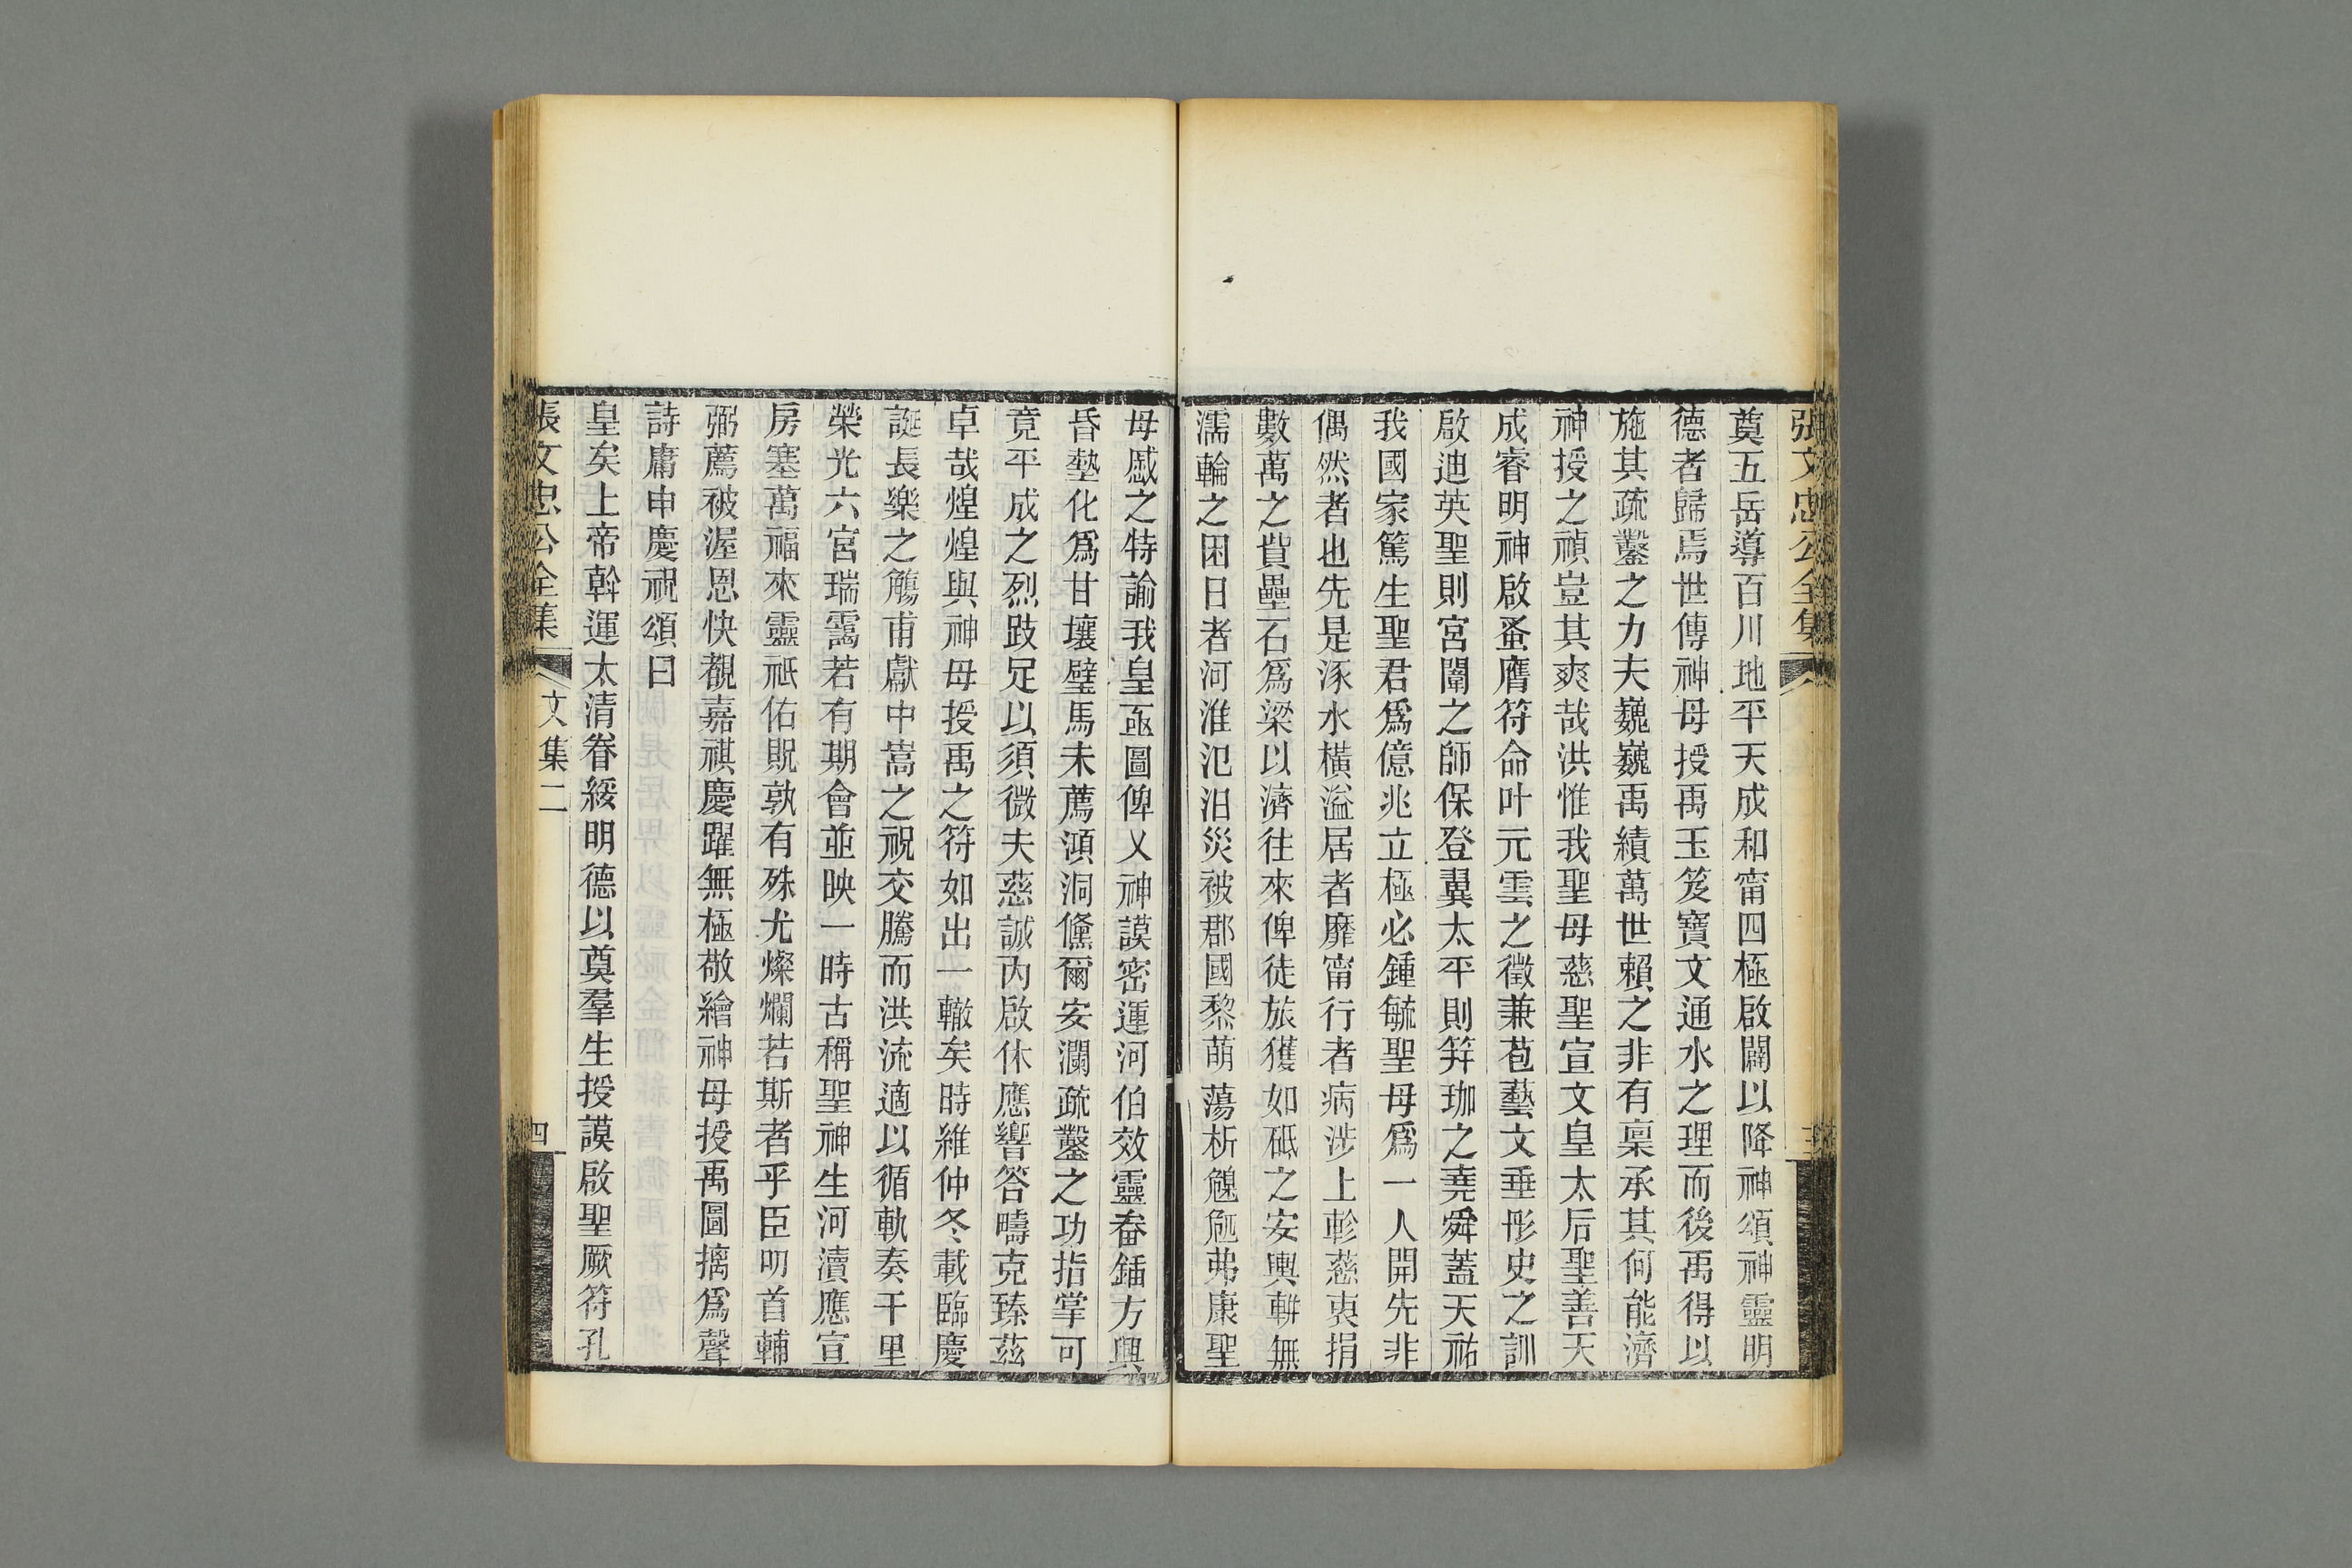 張文忠公全集
奠五岳導百川地平天成和甯四極啟闢以降神頌神靈明
德者歸焉世傳神母授禹玉笈寶文通水之理而後禹得以
施其疏鑿之力夫巍巍禹績萬世賴之非有稟承其何能濟
神授之禎豈其爽哉洪惟我聖母慈聖宣文皇太后聖善天
成睿明神啟蚤膺符命叶元雲之徵兼苞藝文垂彤史之訓
啟迪英聖則宮闈之師保登翼太平則笄珈之堯舜蓋天祐
我國家篤生聖君爲億兆立極必鍾毓聖母爲一人開先非
偶然者也先是涿水橫溢居者靡甯行者病涉上軫慈衷捐
數萬之貲壘石爲梁以濟往來俾徒旅獲如砥之安輿輧無
濡輪之困日者河淮氾汨災被郡國黎萌蕩析臲卼弗康聖
母慼之特諭我皇亟圖俾乂神謨密運河伯效靈畚鍤方興
昏墊化爲甘壤璧馬未薦澒洞儵爾安瀾疏鑿之功指掌可
竟平成之烈跂足以須微夫慈誠內啟休應響答疇克臻茲
卓哉煌煌與神母授禹之符如出一轍矣時維仲冬載臨慶
誕長樂之觴甫獻中嵩之祝交騰而洪流適以循軌奏千里
榮光六宮瑞靄若有期會並映一時古稱聖神生河瀆應宣
房塞萬福來靈祇佑貺孰有殊尤燦爛若斯者乎臣叨首輔
弼薦被渥恩快覩嘉祺慶躍無極敬繪神母授禹圖摛爲聲
詩庸申慶祝頌曰
皇矣上帝斡運太清眷綏明德以奠羣生授謨啟聖厥符孔
張文忠公全集
文集二
四